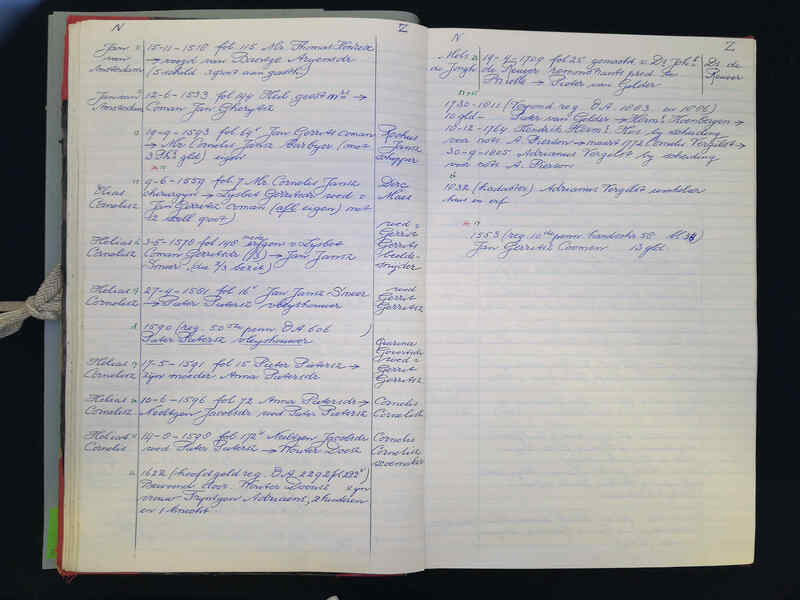 N
Z
Jan
van
Amsterdam
15-11-1518 fol 115 Mr. Thomas
→ voogd van Baertge Aryensdr
(5 schell 3 groot aan gasth.)
Jan van
Amsterdam
12-6-1533 fol 144 Heil. geest mrs →
Coman Jan Gherytsz
19-9-1543 fol 69v Jan Gerrits coman
→ Mr. Cornelis Jansz Barbyer (met
3 Ph. gld) eigen
Rochus
Jansz
schipper
Elias
Cornelisz
9-6-1559 fol 7 Mr. Cornelis Jansz
chirurgyn → Lysbet Gerritsdr wed v
Jan Gerritsz coman (afl. eigen) met
12 schell groot)
Dirc
Maes
Helias
Cornelisz
3-5-1578 fol 148 erfgen v Lysbet
Coman Gerritsdr (1/3) → Jan Jansz
Smeer (die 2/3 bezit)
wed v
Gerrit
Gerrits
Helias
Cornelisz
27-4-1581 fol 16v Jan Jansz Smeer
→ Pieter Pietersz vleyshouwer
wed
Gerrit
Gerritsz
1590 (reg. 50ste penn. O.A. 606 )
Pieter Pietersz vleyshouwer
Helias
Cornelisz
17-5-1591 fol 15 Pieter Pietersz →
zijn moeder Anna Pietersdr
Quirina
Govertsdr
wed v
Gerrit
Gerritsz
Helias
Cornelisz
10-6-1596 fol 72 Anna Pietersdr →
Neeltgen Jacobsdr wed Pieter Pietersz
Cornelis
Cornelisz
Helias
Cornelis
fol 172v Neeltgen Jacobsdr
wed Pieter Pietersz → Wouter Doesz
Cornelis
Cornelisz
1622 (hoofdgeld reg. O.A. 2292 fol 222v)
Bewoond door Wouter Doensz zijn
vrouw Tryntgen Adriaens, 2 kinderen
en 1 knecht
N
Z
de Jongh
19-4-1729 fol 25 gemacht v Ds Joh.s
de Reuser remonstrants pred. te
→ Pieter van Gelder
Ds. de
Reuser
1730-1811 (Verpond. reg. O.A. 1003 en 1006)
10 gld - Pieter van Gelder → Herms. Koenbergen →
10-12-1764 Hendrik Herms. Kes by scheiding
voor nots A. Pierson → maart 1772 Cornelis Vergilst →
30-9-1805 Adrianus Vergilst by scheiding
voor nots A. Pierson
1832 (kadaster) Adrianus Vergilst winkelier
huis en erf
1553 (reg. 10de penn. handschr 58 bl 38)
Jan Gerritsz Coomen 13 gld